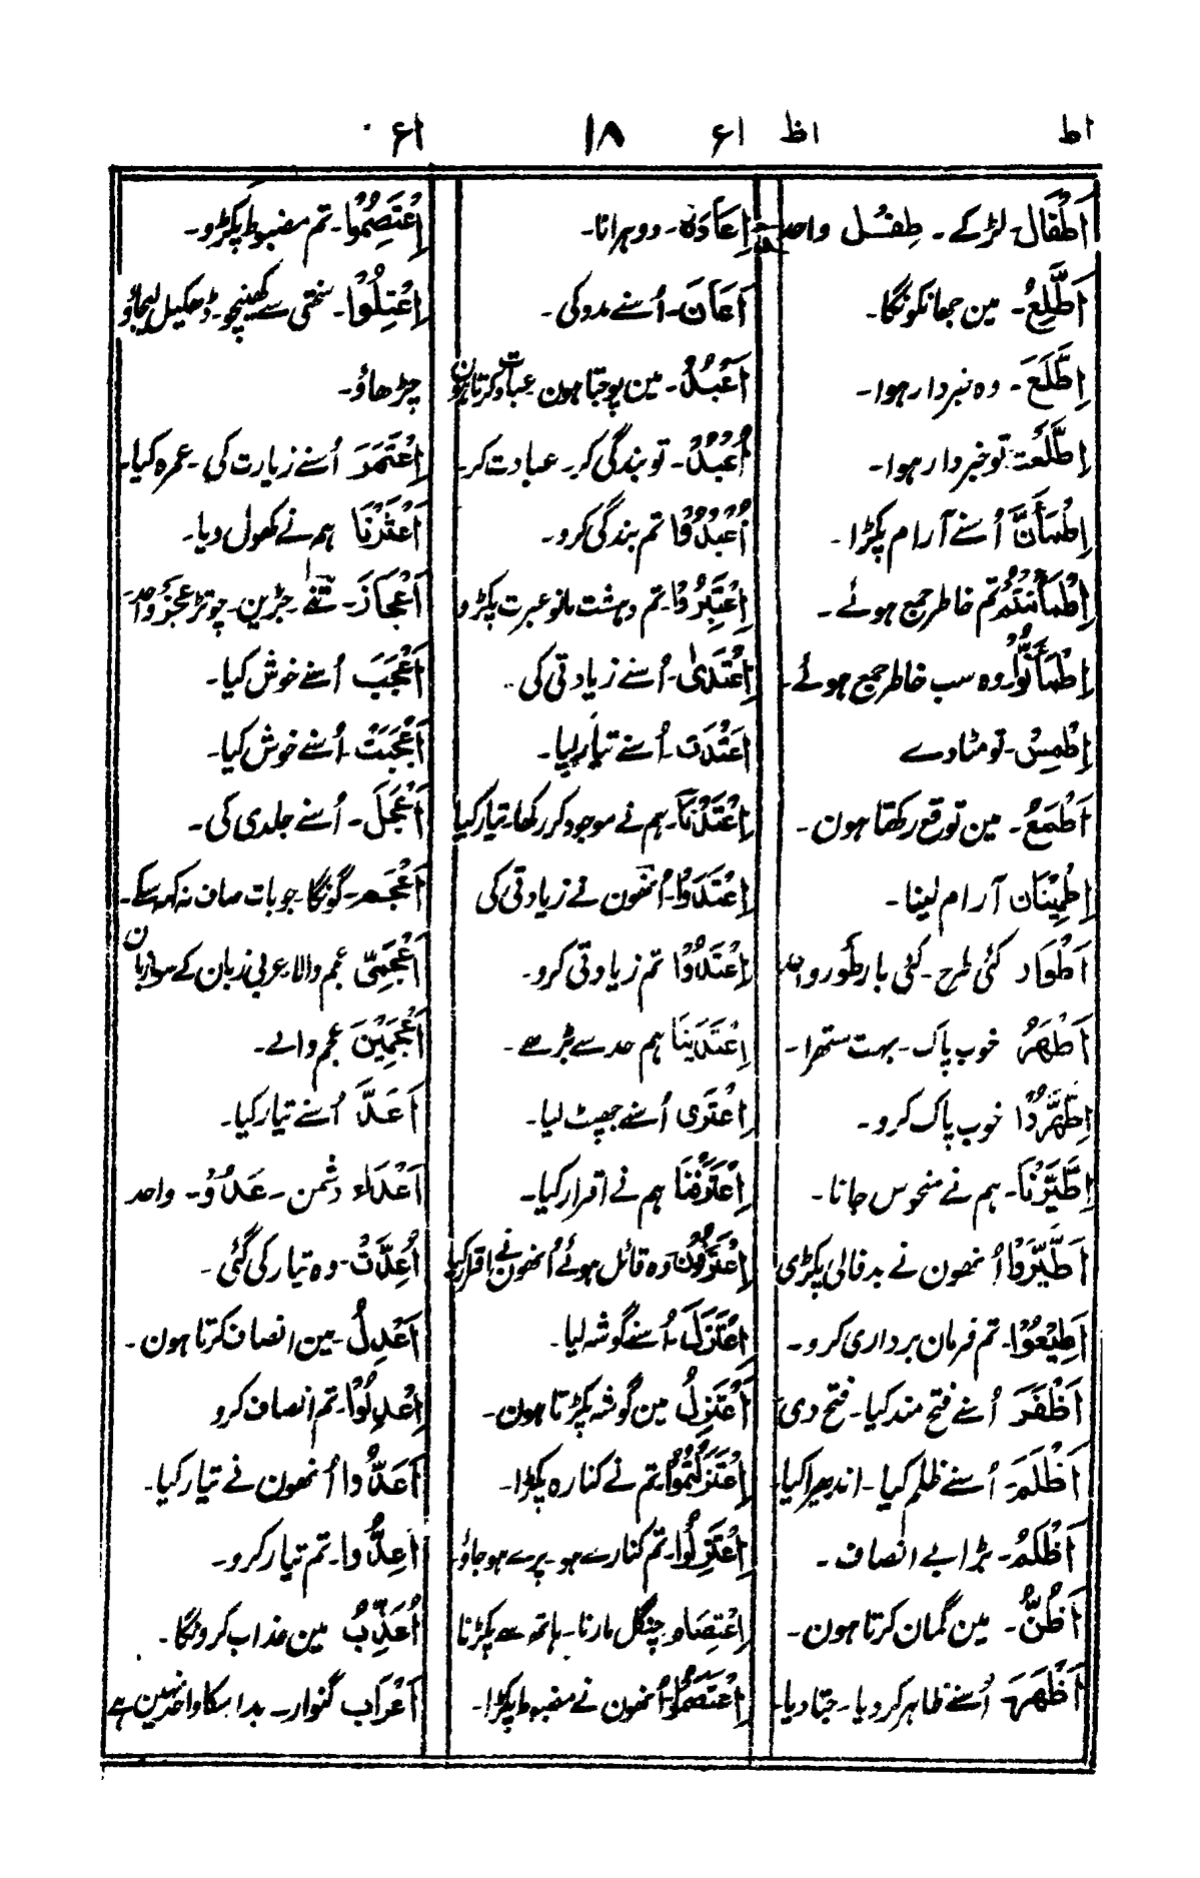 اط
اظ
اع
۱۸
اع
اَطْفَال۔ لڑکے۔ طِفْل واحد
اَطَّلِعُ۔ مین جھانکونگا۔
اِطَّلَعَ۔ وہ خبردار ہوا۔
اِطَّلَعْتَ تو خبردار ہوا۔
اِطْمَأَنَّ اُسنے آرام پکڑا۔
اِطْمَأْنَنْتُمْ تم خاطر جمع ہوئے۔
اِطْمَأَنُّوْا۔ وہ سب خاطر جمع ہوئے۔
اِطْمِسْ۔ تو مٹادے
اَطْمَعُ۔ مین توقع رکھتا ہون۔
اِطْمِیْنَان آرام لینا۔
اَطْوَار کئی طرح۔ کئی بار طَور واحد
اَطْهَرُ خوب پاک۔ بہت ستھرا۔
اِطَّهَّرُوْا خوب پاک کرو۔
اِطَّیَّرْنَا۔ ہم نے منحوس جانا۔
اَطَّیَّرُوْا اُنھون نے بدفالی پکڑی
اَطِیْعُوْا۔ تم فرمان برداری کرو۔
اَظْفَرَ اُسنے فتح مند کیا۔ فتح دی
اَظْلَمَ اُسنے ظلم کیا۔ اندھیرا کیا۔
اَظْلَمُ۔ بڑا بے انصاف۔
اَظُنُّ۔ مین گمان کرتا ہون۔
اَظْهَرَ اُسنے ظاہر کر دیا۔ جتا دیا۔
اِعَادَہ۔ دوہرانا۔
اَعَانَ۔ اُسنے مدد کی۔
اَعْبُدُ۔ مین پوجتا ہون عبادت کرتا ہون
اُعْبُدْ۔ تو بندگی کر۔ عبادت کر۔
اُعْبُدُوْا تم بندگی کرو۔
اِعْتَبِرُوْا۔ تم دہشت مانو عبرت پکڑو
اِعْتَدٰی۔ اُسنے زیادتی کی۔
اَعْتَدَت۔ اُسنے تیار کیا۔
اِعْتَدْنَا۔ ہم نے موجود کر رکھا۔ تیار کیا
اِعْتَدَوْا۔ اُنھون نے زیادتی کی
اِعْتَدُوْا تم زیادتی کرو۔
اِعْتَدَیْنَا ہم حد سے بڑھے۔
اِعْتَرٰی اُسنے جھپٹ لیا۔
اِعْتَرَفْنَا ہم نے اقرار کیا۔
اِعْتَرَفُوْا۔ وہ قائل ہوئے اُنھون نے اقرار کیا
اِعْتَزَلَ۔ اُسنے گوشہ لیا۔
اَعْتَزِلُ مین گوشہ پکڑتا ہون۔
اِعْتَزَلْتُمُوْا۔ تم نے کنارہ پکڑا۔
اِعْتَزِلُوْا۔ تم کنارے ہو۔ پرے ہو جاؤ۔
اِعْتِصَام چنگل مارنا۔ ہاتھ سے پکڑنا
اِعْتَصَمُوْا۔ اُنھون نے مضبوط پکڑا۔
اِعْتَصِمُوْا۔ تم مضبوط پکڑو۔
اِعْتِلُوْا۔ سختی سے کھینچو۔ ڈھکیل لیجاؤ
چڑھاؤ۔
اِعْتَمَرَ اُسنے زیارت کی۔ عمرہ کیا۔
اَعْثَرْنَا ہم نے کھول دیا۔
اَعْجَاز۔ تنے۔ جڑین۔ چوتڑ عَجُز واحد
اَعْجَبَ اُسنے خوش کیا۔
اَعْجَبَتْ۔ اُسنے خوش کیا۔
اَعْجَلَ۔ اُسنے جلدی کی۔
اَعْجَم۔ گونگا۔ جو بات صاف نہ کہہ سکے۔
اَعْجَمِیّ عجم والا۔ عربی زبان کے سوا زبان
اَعْجَمِیْنَ عجم والے۔
اَعَدَّ اُسنے تیار کیا۔
اَعْدَاء دشمن۔ عَدُوّ۔ واحد
اُعِدَّتْ۔ وہ تیار کی گئی۔
اَعْدِلُ۔ مین انصاف کرتا ہون۔
اِعْدِلُوْا۔ تم انصاف کرو
اَعَدُّوا اُنھون نے تیار کیا۔
اَعِدُّوا۔ تم تیار کرو۔
اُعَذِّبُ مین عذاب کرونگا۔
اَعْرَاب گنوار۔ بدو اسکا واحد نہین ہے